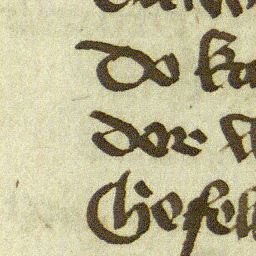 do ka
der w
Gesell